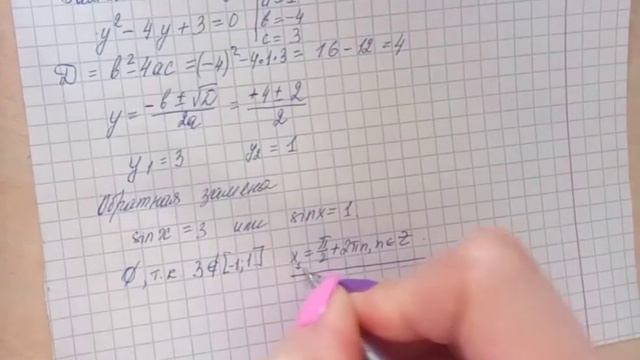 y² - 4y + 3 = 0
b = -4
c = 3
D = b² - 4ac = (-4)² - 4·1·3 = 16 - 12 = 4
y = (-b ± √D)/2a = (+4 ± 2)/2
y₁ = 3 y₂ = 1
Обратная замена
sinx = 3 или sinx = 1
∅, т.к 3∉[-1;1] x = π/2 + 2πn, n∈Z